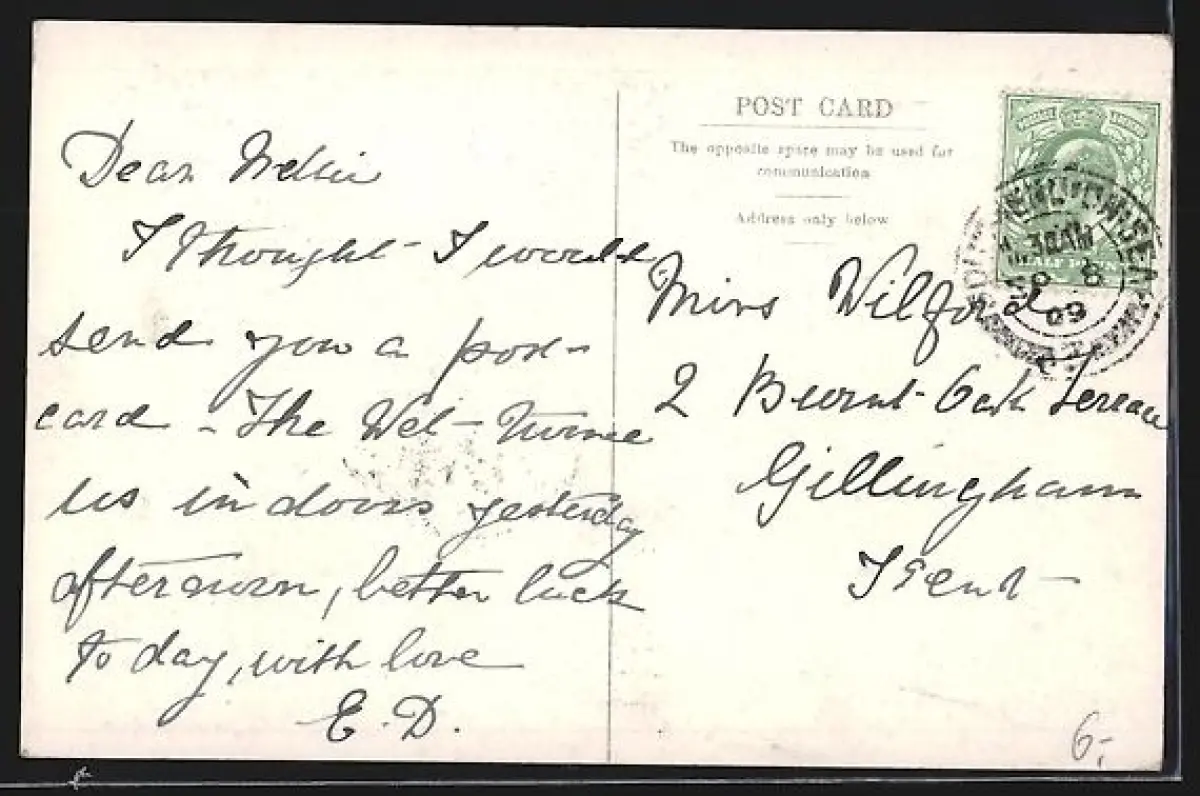 Dear Nellie
I thought I would
send you a post-
card - The Wet turned
us in doors yesterday
afternoon, better luck
to day, with love
E. D.
POST CARD
The opposite space may be used for
communication
Address only below
HALF PENNY
8
09
Miss Wilford
2 Burnt Oak Terrace
Gillingham
Kent
6,-